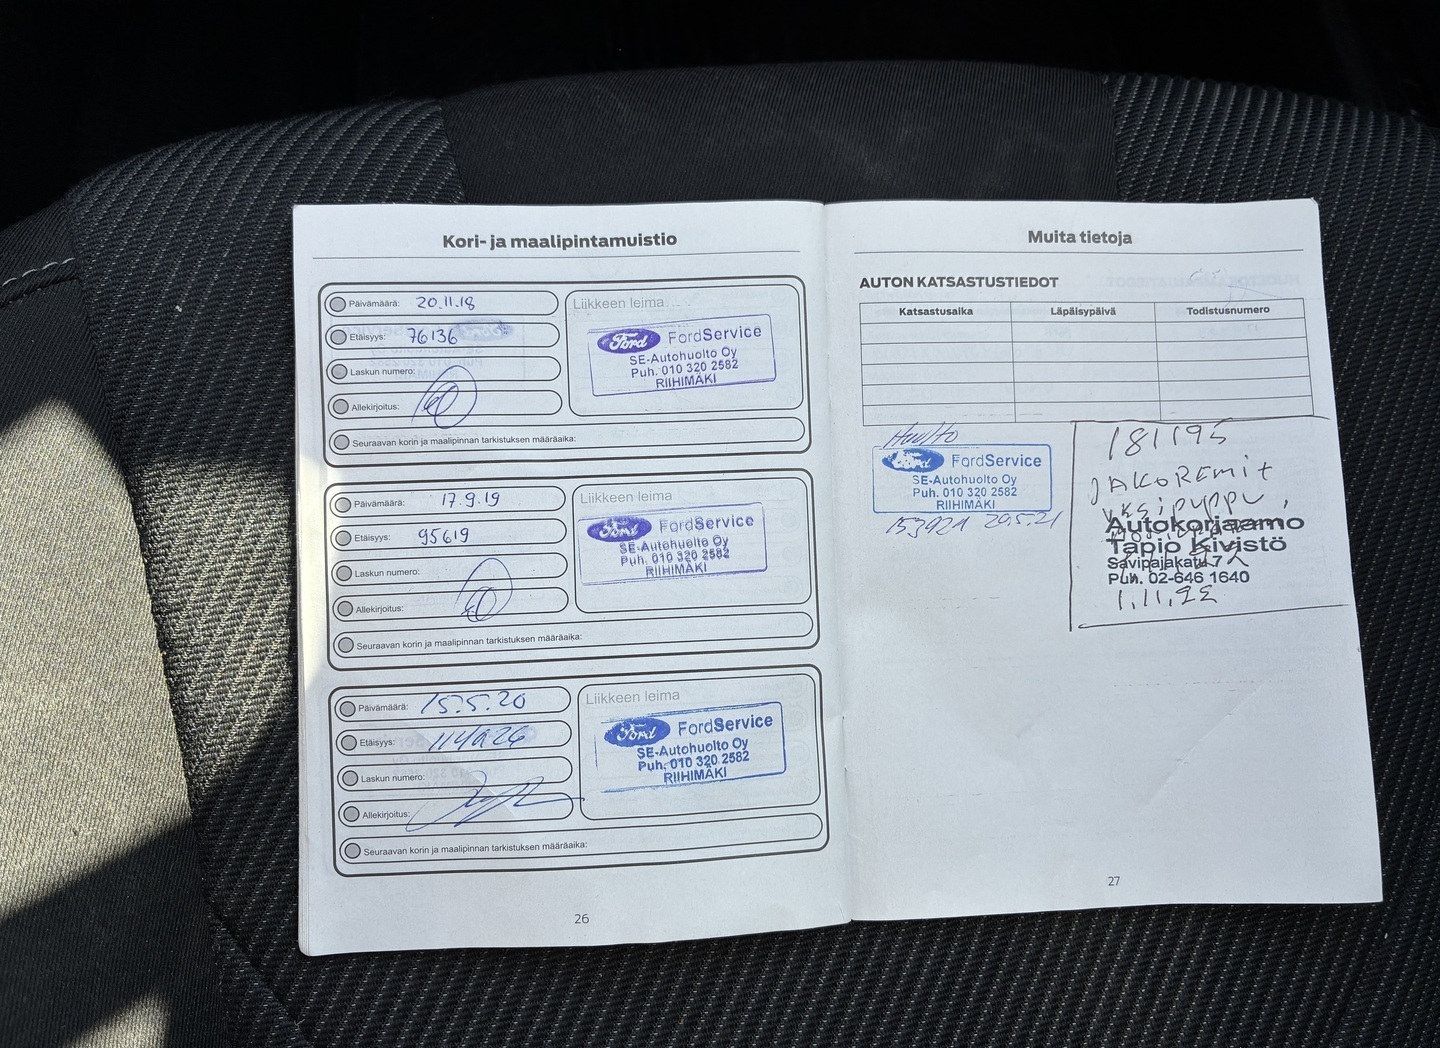 Kori- ja maalipintamuistio
Päivämäärä: 20.11.18
Etäisyys: 76136
Laskun numero:
Allekirjoitus:
Seuraavan korin ja maalipinnan tarkistuksen määräaika:
Liikkeen leima
Ford FordService
SE-Autohuolto Oy
Puh. 010 320 2582
RIIHIMÄKI
Päivämäärä: 17.9.19
Etäisyys: 95619
Laskun numero:
Allekirjoitus:
Seuraavan korin ja maalipinnan tarkistuksen määräaika:
Liikkeen leima
Ford FordService
SE-Autohuolto Oy
Puh. 010 320 2582
RIIHIMÄKI
Päivämäärä: 15.5.20
Etäisyys:
Laskun numero:
Allekirjoitus:
Seuraavan korin ja maalipinnan tarkistuksen määräaika:
Liikkeen leima
Ford FordService
SE-Autohuolto Oy
Puh. 010 320 2582
RIIHIMÄKI
26
Muita tietoja
AUTON KATSASTUSTIEDOT
Katsastusaika Läpäisypäivä Todistusnumero
Huolto
Ford FordService
SE-Autohuolto Oy
Puh. 010 320 2582
RIIHIMÄKI
153921 29.5.21
181195
JAKOREMIT
VESIPUPPU,
Autokorjaamo
Tapio Kivistö
Savipajakatu 7
Puh. 02-646 1640
1.11.22
27